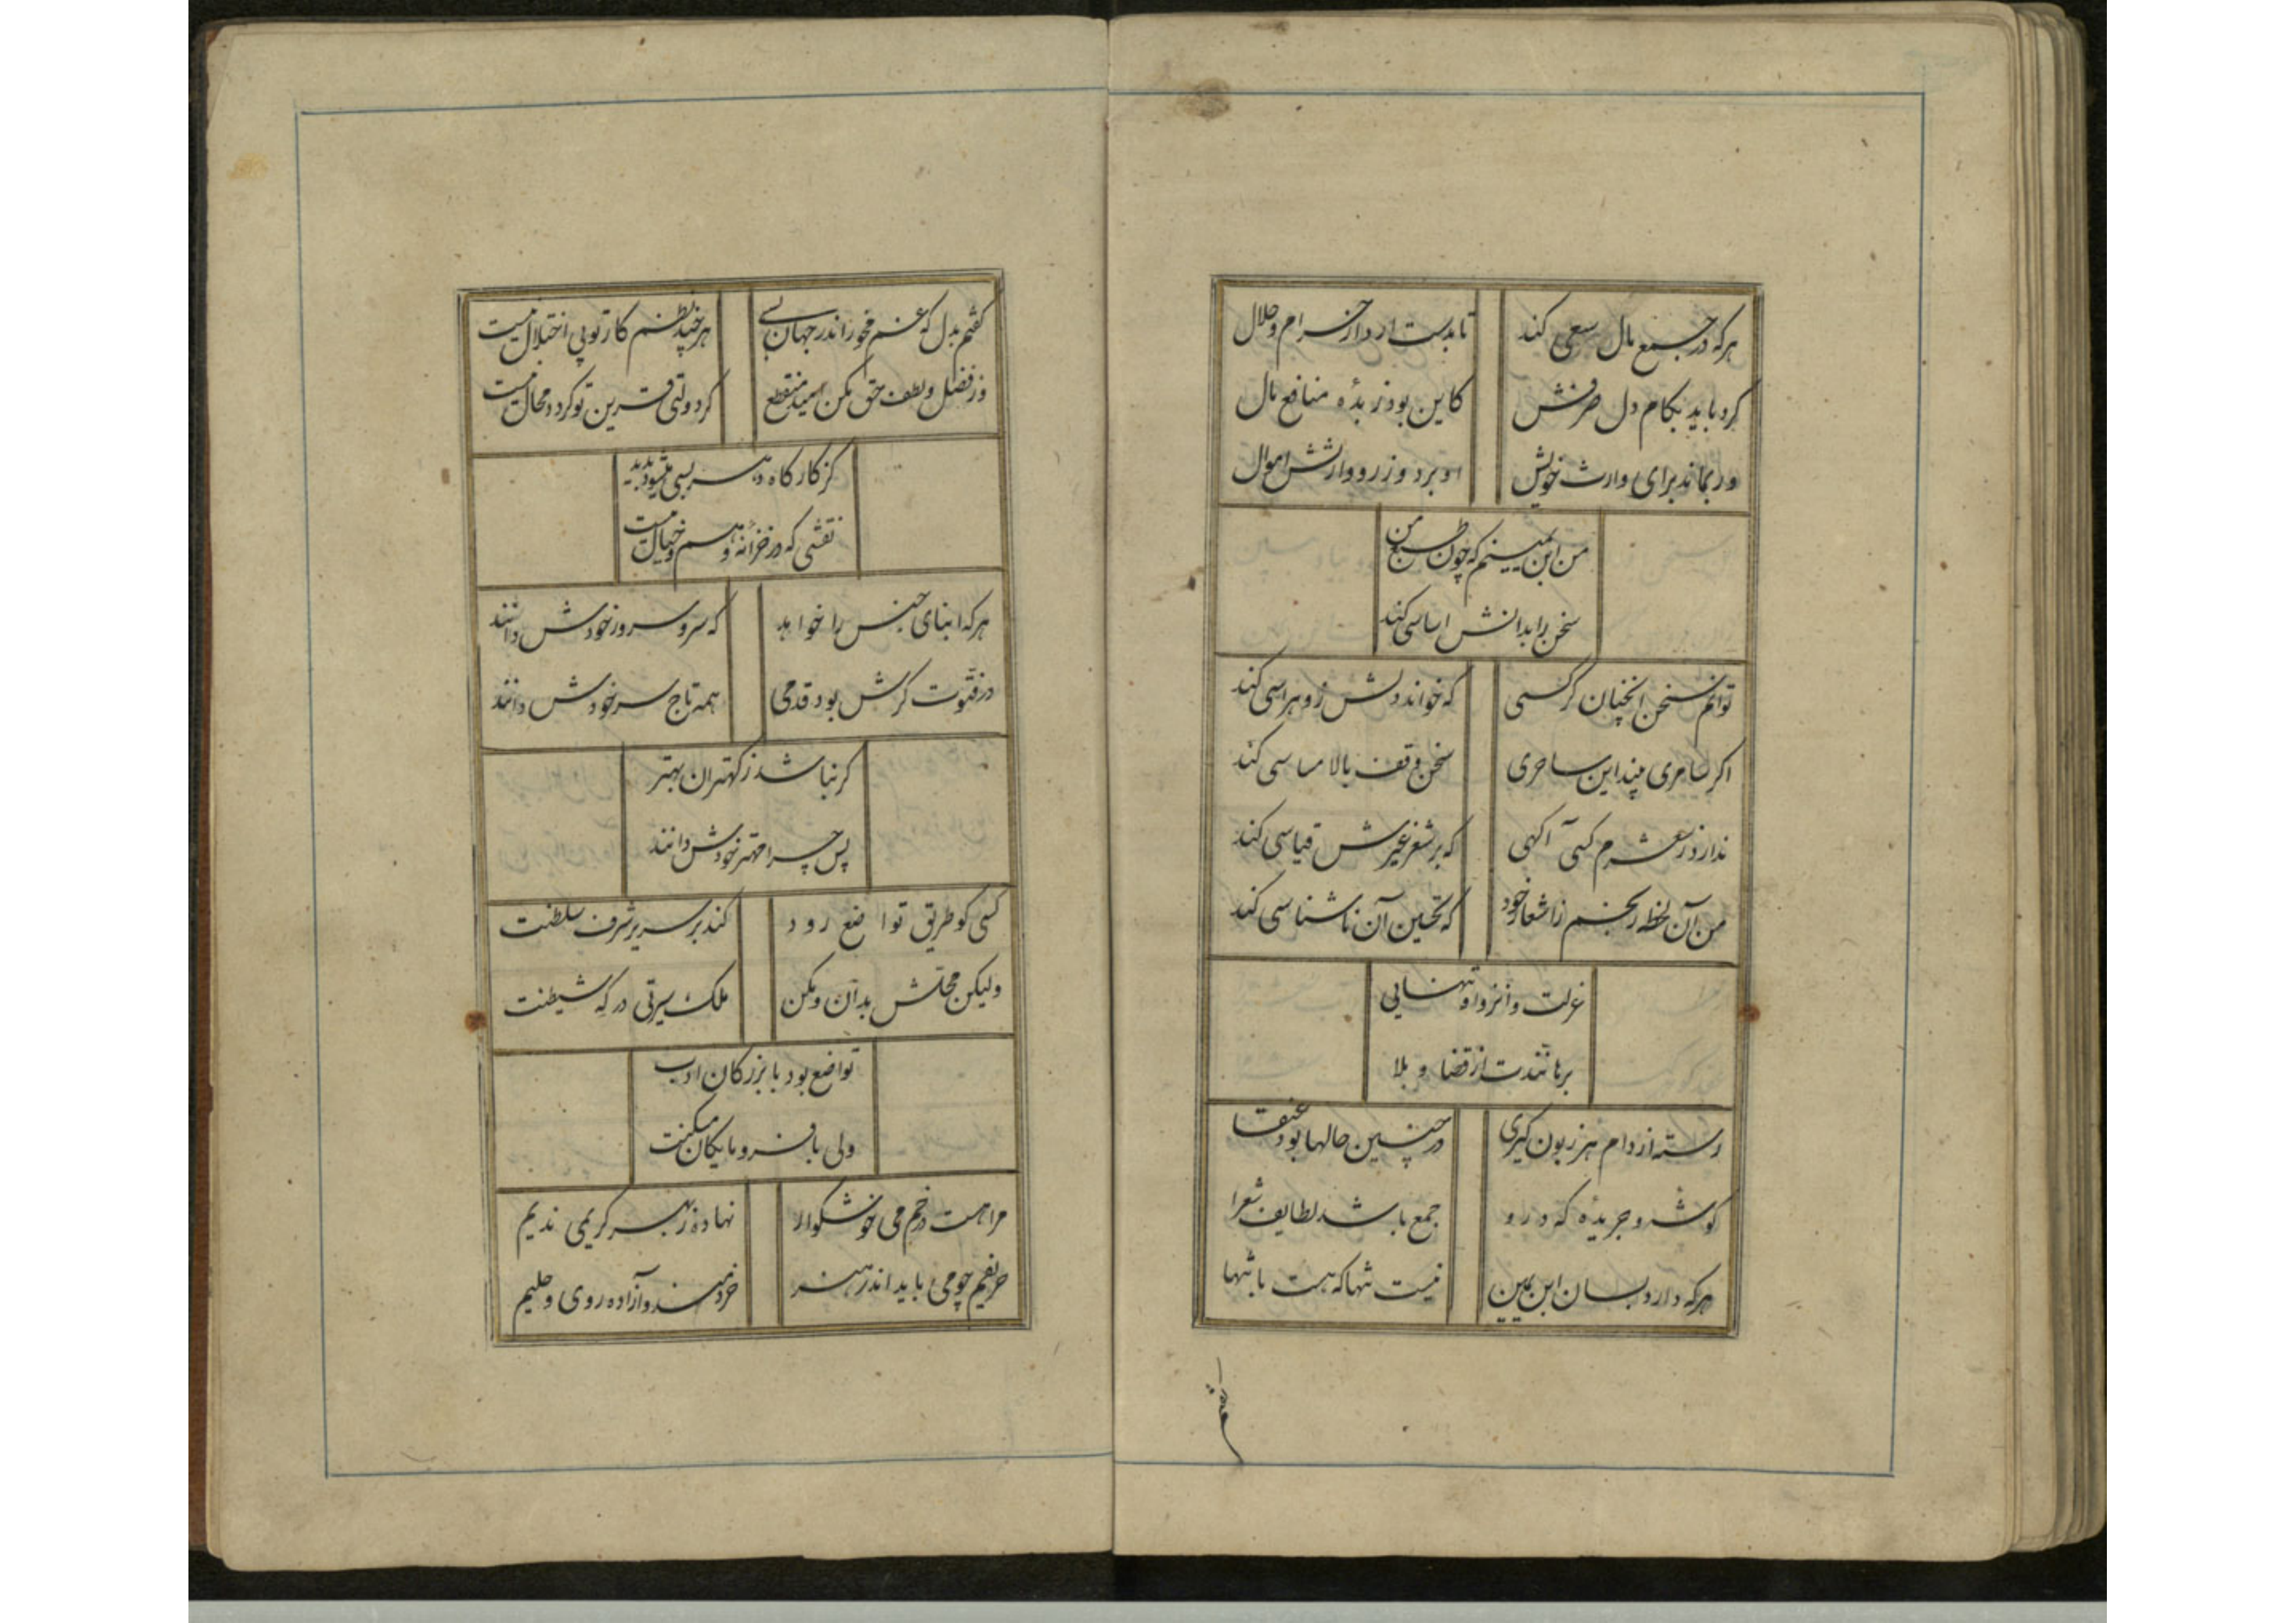 هرکه در جمع مال سعی کند تا بدست ارد از حرام و حلال
کرد باید بکام دل صرفش کاین بود زبدهٔ منافع مال
ور بماند برای وارث خویش او برد وزر و وارثش اموال
من ابن یمینم که چون طبع من
سخن را بدانش اساسی کند
توانم سخن انچنان کرد کسی که خواند دلش زو هراسی کند
اگر سامری چند این ساحری سخن وقف بالا مساسی کند
ندارد ز شعرم کسی آگهی که بر شعر غیرش قیاسی کند
من آن لحظه رنجم ز اشعار خود که تحسین آن ناشناسی کند
عزلت و انزوا و تنهایی
برهانندت از قضا و بلا
رسته از دام هر زبون گیری در چنین حالها بود عنقا
گوشه و جریدهٔ که درو جمع باشد لطایف شعرا
هرکه دارد بسان ابن یمین نیست تنها که هست با تنها
گفتم بدل که غم مخور اندر جهان بسی هرچند نظم کار تو بی اختلال نیست
وز فضل و لطف حق مکن امید منقطع گر دولتی قرین تو گردد محال نیست
کز کارگاه دهر بسی میشود پدید
نقشی که در خزانه وهم و خیال نیست
هرکه ابنای جنس را خواهد که سر و سرور خودش دانند
در فتوت گرش بود قدمی همه تاج سر خودش دانند
گر نباشد ز کهتران بهتر
پس چرا مهتر خودش دانند
کسی کو طریق تواضع رود کند بر سریر شرف سلطنت
ولیکن محلش بدان و مکن ملک سیرتی درگه شیطنت
تواضع بود با بزرگان ادب
ولی با فرومایگان مسکنت
مرا هست در خم می خوشگوار نهاده ز بهر کریمی ندیم
حریفیم چو می باید اندر هنر خردمند و آزاده روی و حلیم